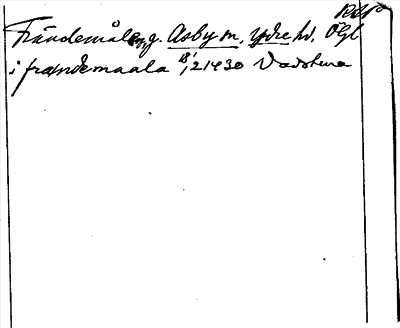 Frändemåla g. Asby sn, Ydre hd, Ögl
i frændemaala 18/12 1430 Vadstena